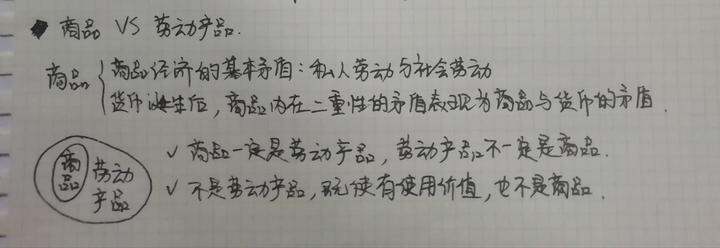 商品 VS 劳动产品.
商品 { 商品经济的基本矛盾：私人劳动与社会劳动
货币诞生后，商品内在二重性的矛盾表现为商品与货币的矛盾.
✓ 商品一定是劳动产品，劳动产品不一定是商品.
商品 劳动产品
✓ 不是劳动产品，既使有使用价值，也不是商品.